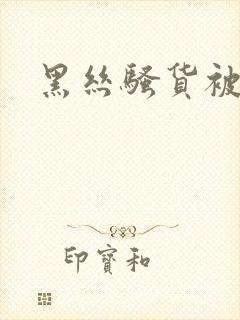 黑丝骚货被
印寳和